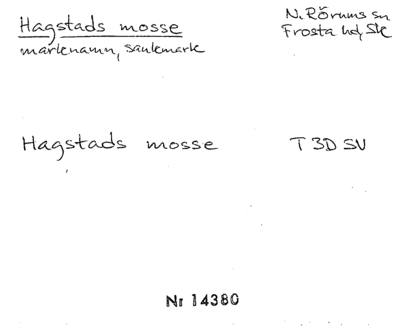 Hagstads mosse
marknamn, sankmark
N. Rörums sn
Frosta hd, Sk
Hagstads mosse
T 3D SV
Nr 14380